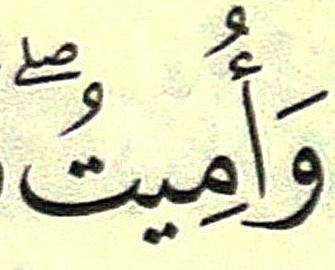 وَأُمِيتُ ۖ